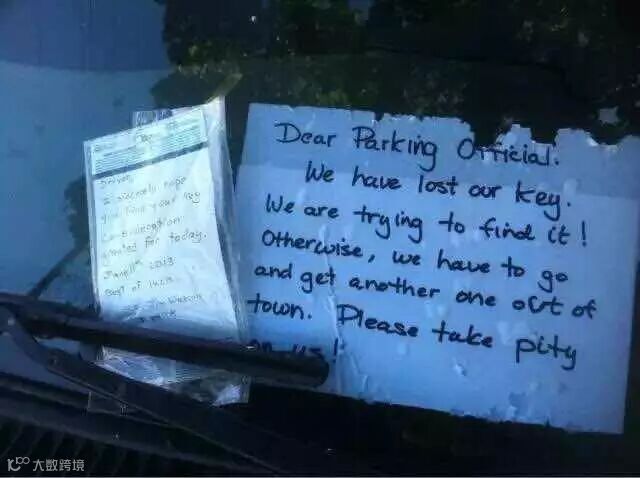 Driver,
I sincerely hope
you find your key
Consideration
granted for today.
Best of luck
Dear Parking Official.
We have lost our key.
We are trying to find it!
Otherwise, we have to go
and get another one out of
town. Please take pity
on us!
大数跨境